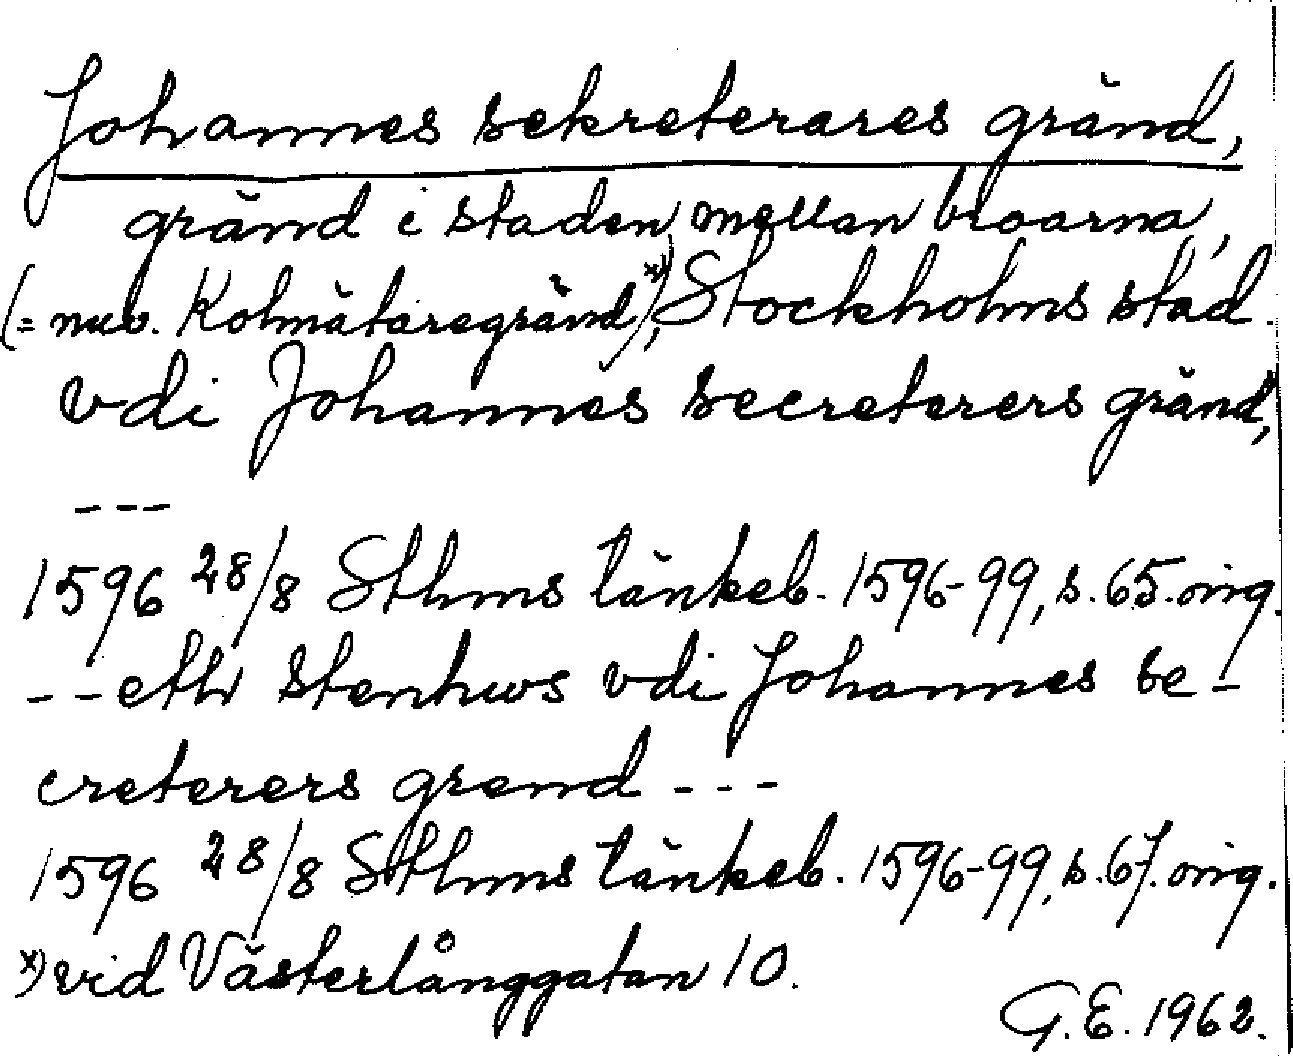 Johannes sekreterares gränd,
gränd i staden mellan broarna,
(= nuv. Kolmätaregränd x)), Stockholms stad.
vdi Johannes secreterers gränd,
---
1596 28/8 Sthms tänkeb. 1596-99, s. 65. orig.
-- eth stenhws vdi Johannes se-
creterers grend ---
1596 28/8 Sthms tänkeb. 1596-99, s. 67. orig.
x) vid Västerlånggatan 10.
G.E. 1962.